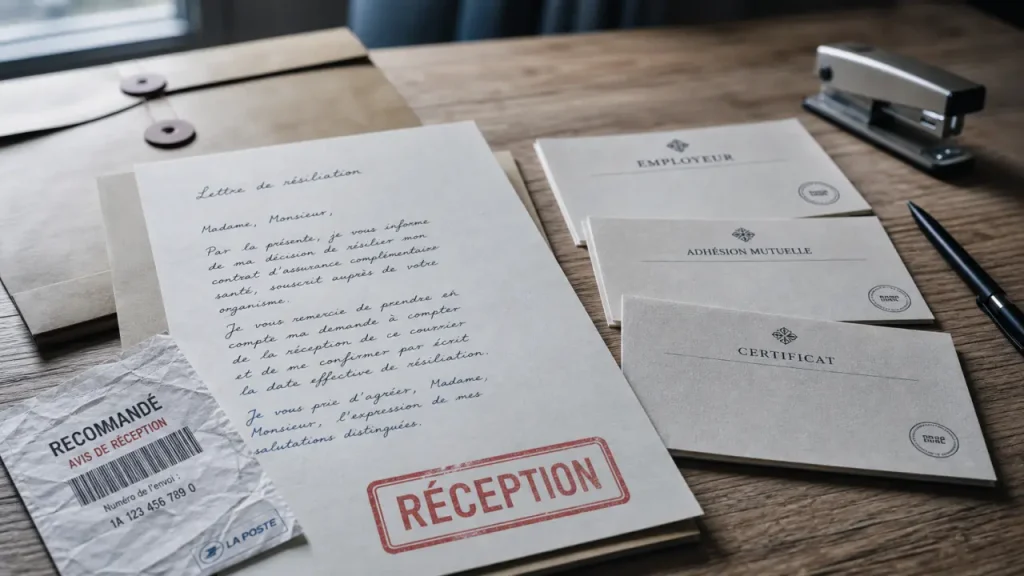 Lettre de résiliation
Madame, Monsieur,
Par la présente, je vous informe
de ma décision de résilier mon
contrat d'assurance complémentaire
santé, souscrit auprès de votre
organisme.
Je vous remercie de prendre en
compte ma demande à compter
de la réception de ce courrier
et de me confirmer par écrit
la date effective de résiliation.
Je vous prie d'agréer, Madame,
Monsieur, l'expression de mes
salutations distinguées.
RÉCEPTION
RECOMMANDÉ
AVIS DE RÉCEPTION
Numéro de l'envoi :
1A 123 456 789 0
LA POSTE
EMPLOYEUR
ADHÉSION MUTUELLE
CERTIFICAT